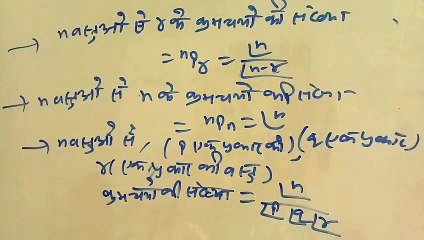 → n वस्तुओं से r के क्रमचयों की संख्या
= ⁿPᵣ = ⌊n / ⌊n-r
→ n वस्तुओं से n के क्रमचयों की संख्या
= ⁿPₙ = ⌊n
→ n वस्तुओं से, (P एक प्रकार की) (q एक प्रकार)
r (एक प्रकार की वस्तु)
क्रमचयों की संख्या = ⌊n / ⌊P ⌊q ⌊r